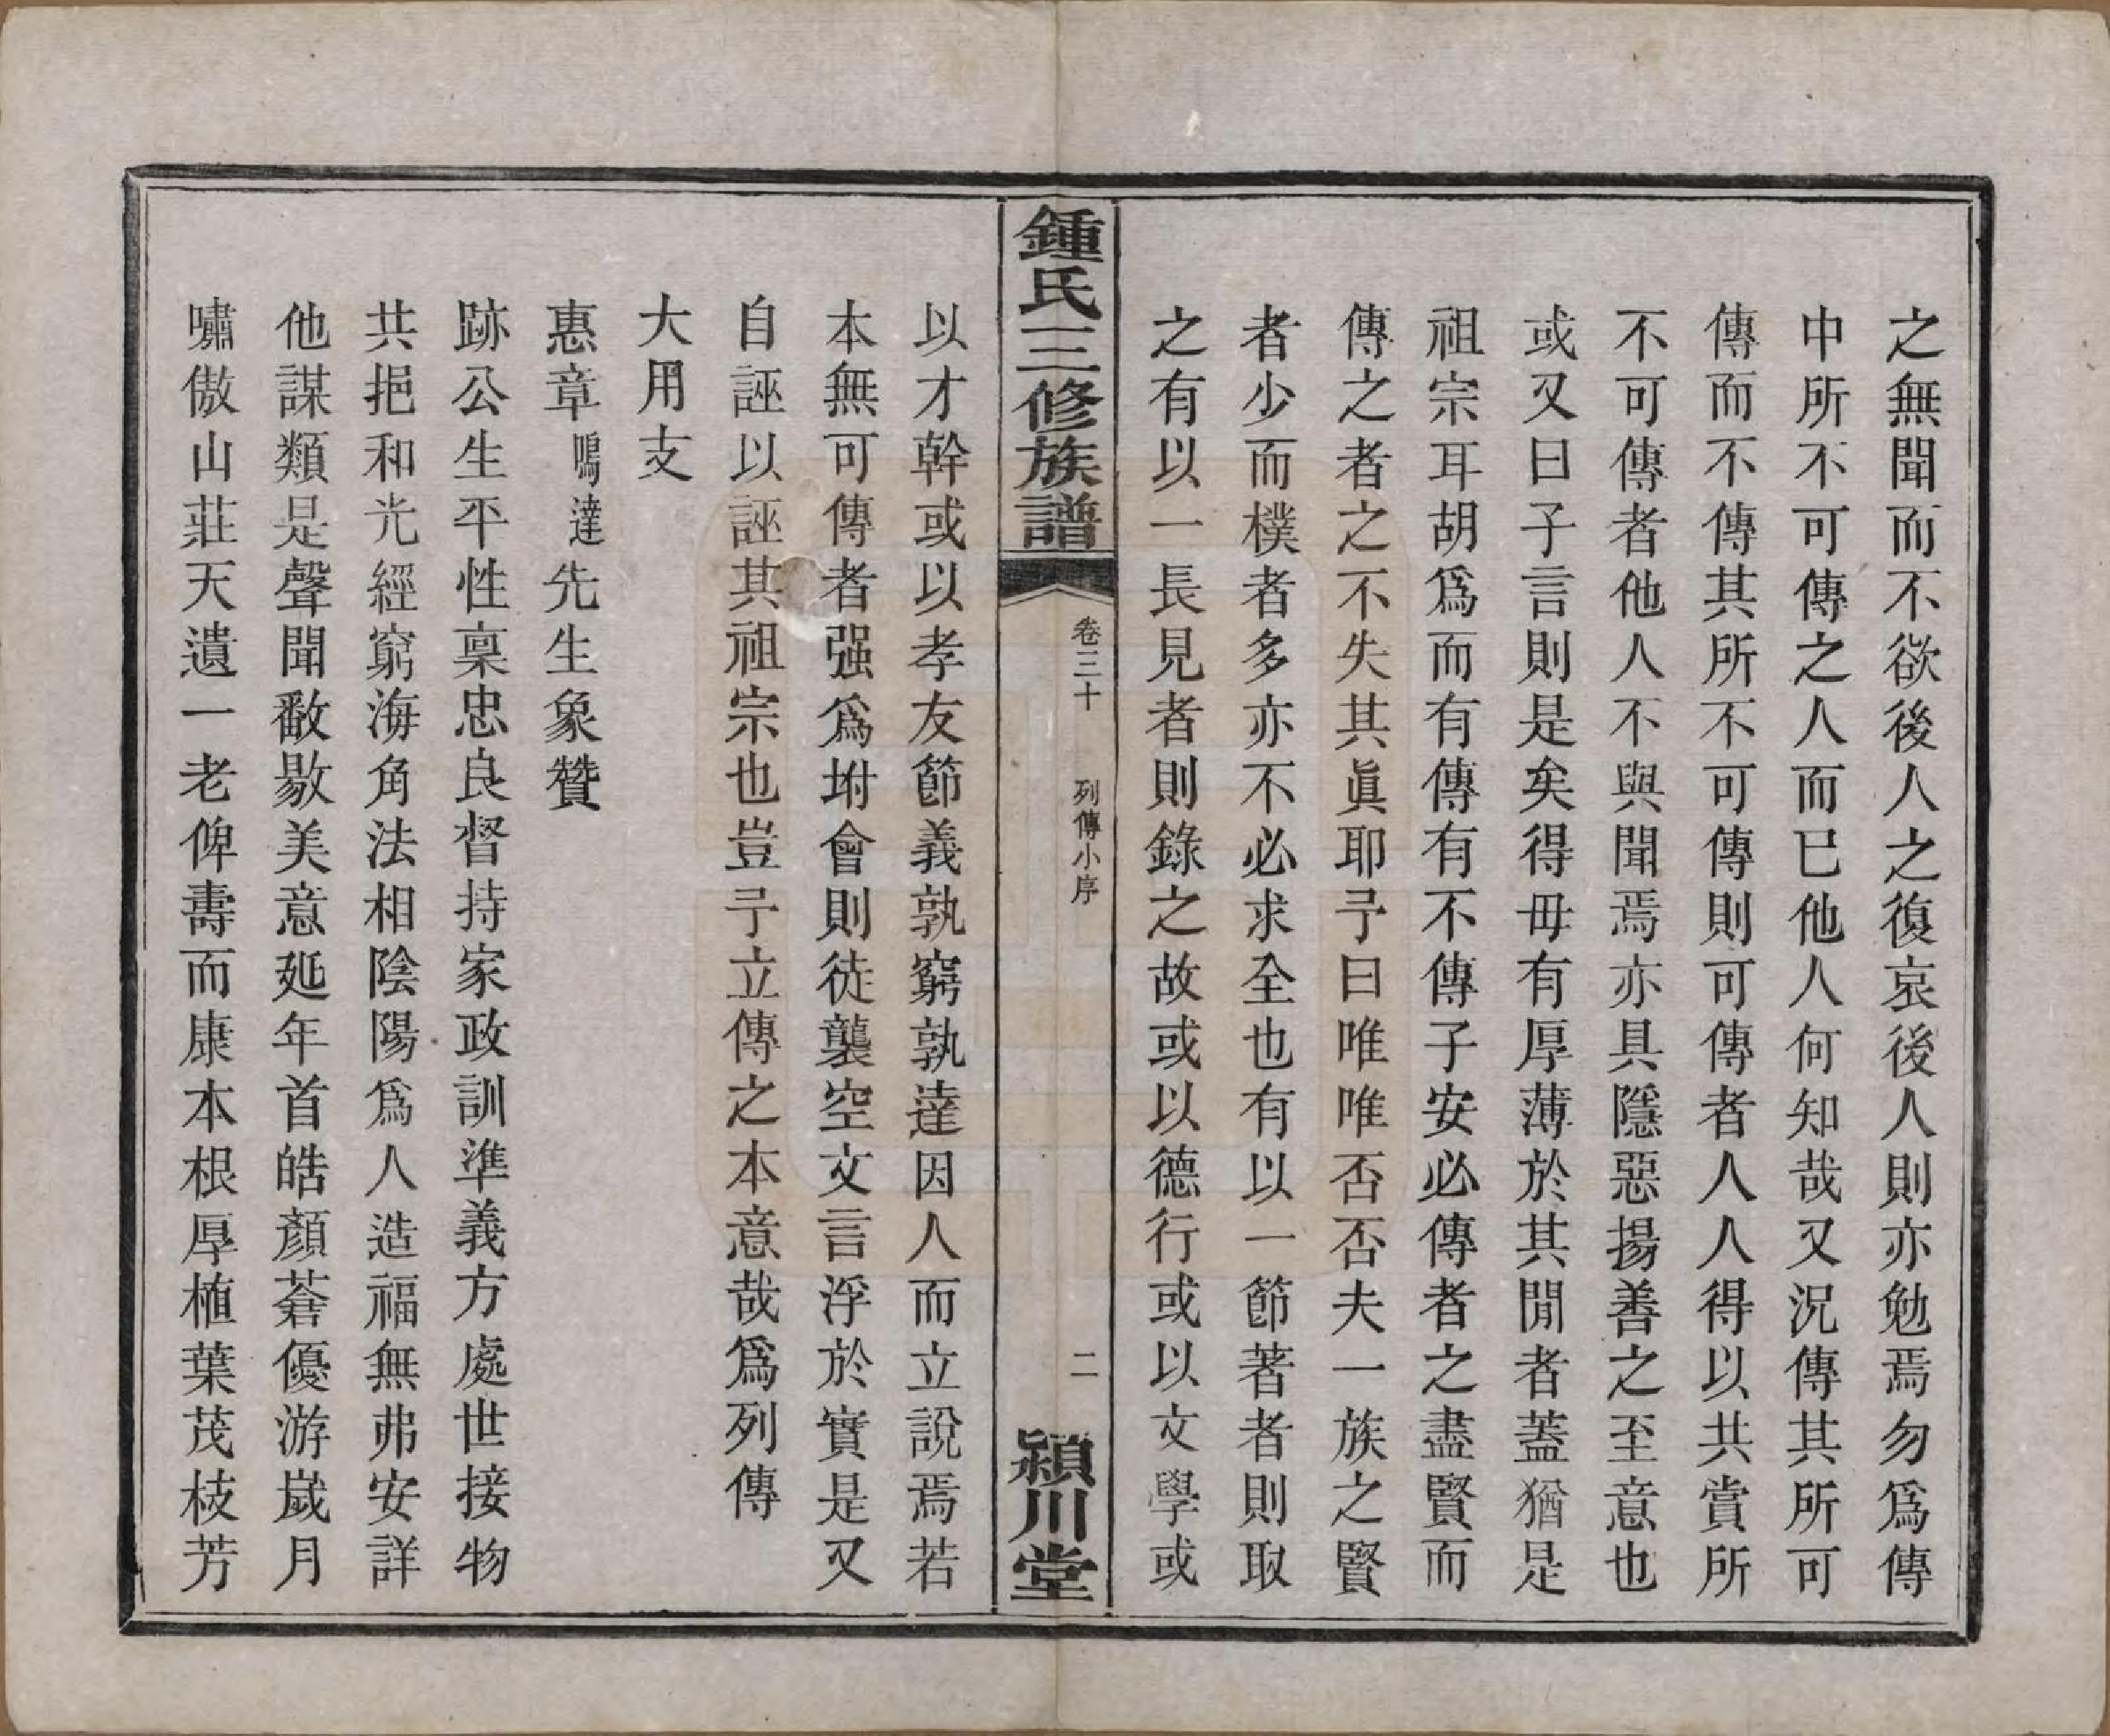 之無聞而不欲後人之復哀後人則亦勉焉勿爲傳
中所不可傳之人而已他人何知哉又況傳其所可
傳而不傳其所不可傳則可傳者人人得以共賞所
不可傳者他人不與聞焉亦具隱惡揚善之至意也
或又曰子言則是矣得毋有厚薄於其閒者蓋猶是
祖宗耳胡爲而有傳有不傳子安必傳者之盡賢而
傳之者之不失其眞耶予曰唯唯否否夫一族之賢
者少而樸者多亦不必求全也有以一節著者則取
之有以一長見者則錄之故或以德行或以文學或
鍾氏三修族譜
卷三十
列傳小序
二
潁川堂
以才幹或以孝友節義孰窮孰達因人而立說焉若
本無可傳者强爲坿會則徒襲空文言浮於實是又
自誣以誣其祖宗也豈予立傳之本意哉爲列傳
大用支
惠章鳴達先生象贊
跡公生平性稟忠良督持家政訓準義方處世接物
共挹和光經窮海角法相陰陽爲人造福無弗安詳
他謀類是聲聞翻敭美意延年首皓顏蒼優游嵗月
嘯傲山莊天遺一老俾壽而康本根厚植葉茂枝芳